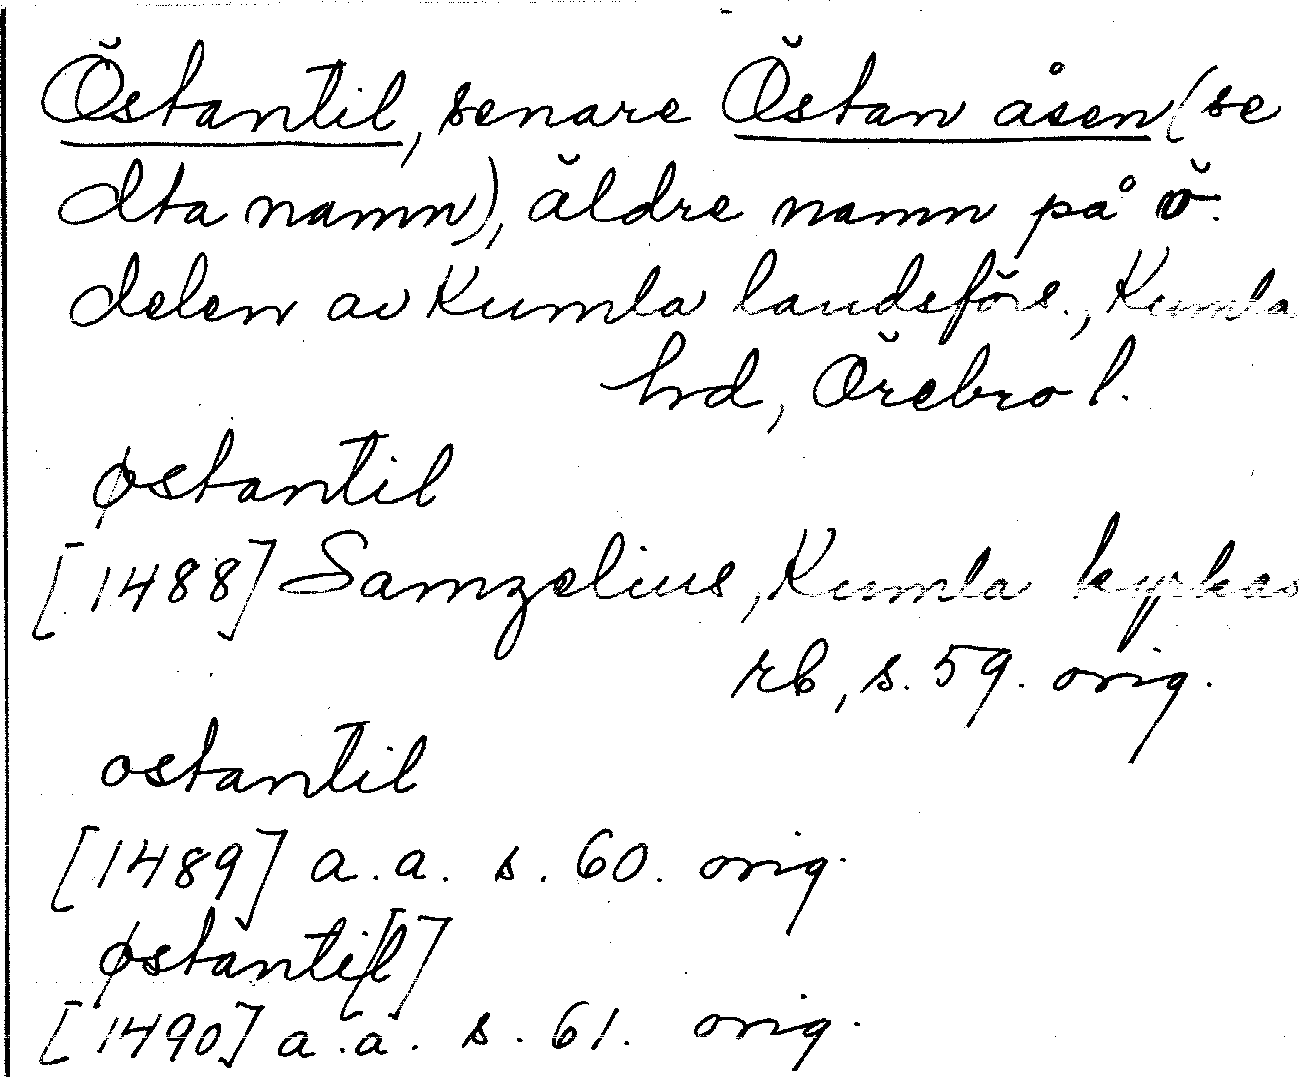 Östantil, senare Östan åsen (se
dta namn), äldre namn på ö.
delen av Kumla landsförs., Kumla
hd, Örebro l.
østantil
[1488] Samzelius, Kumla kyrkas
rb, s. 59. orig.
ostantil
[1489] a.a. s. 60. orig.
østanti[l]
[1490] a.a. s. 61. orig.